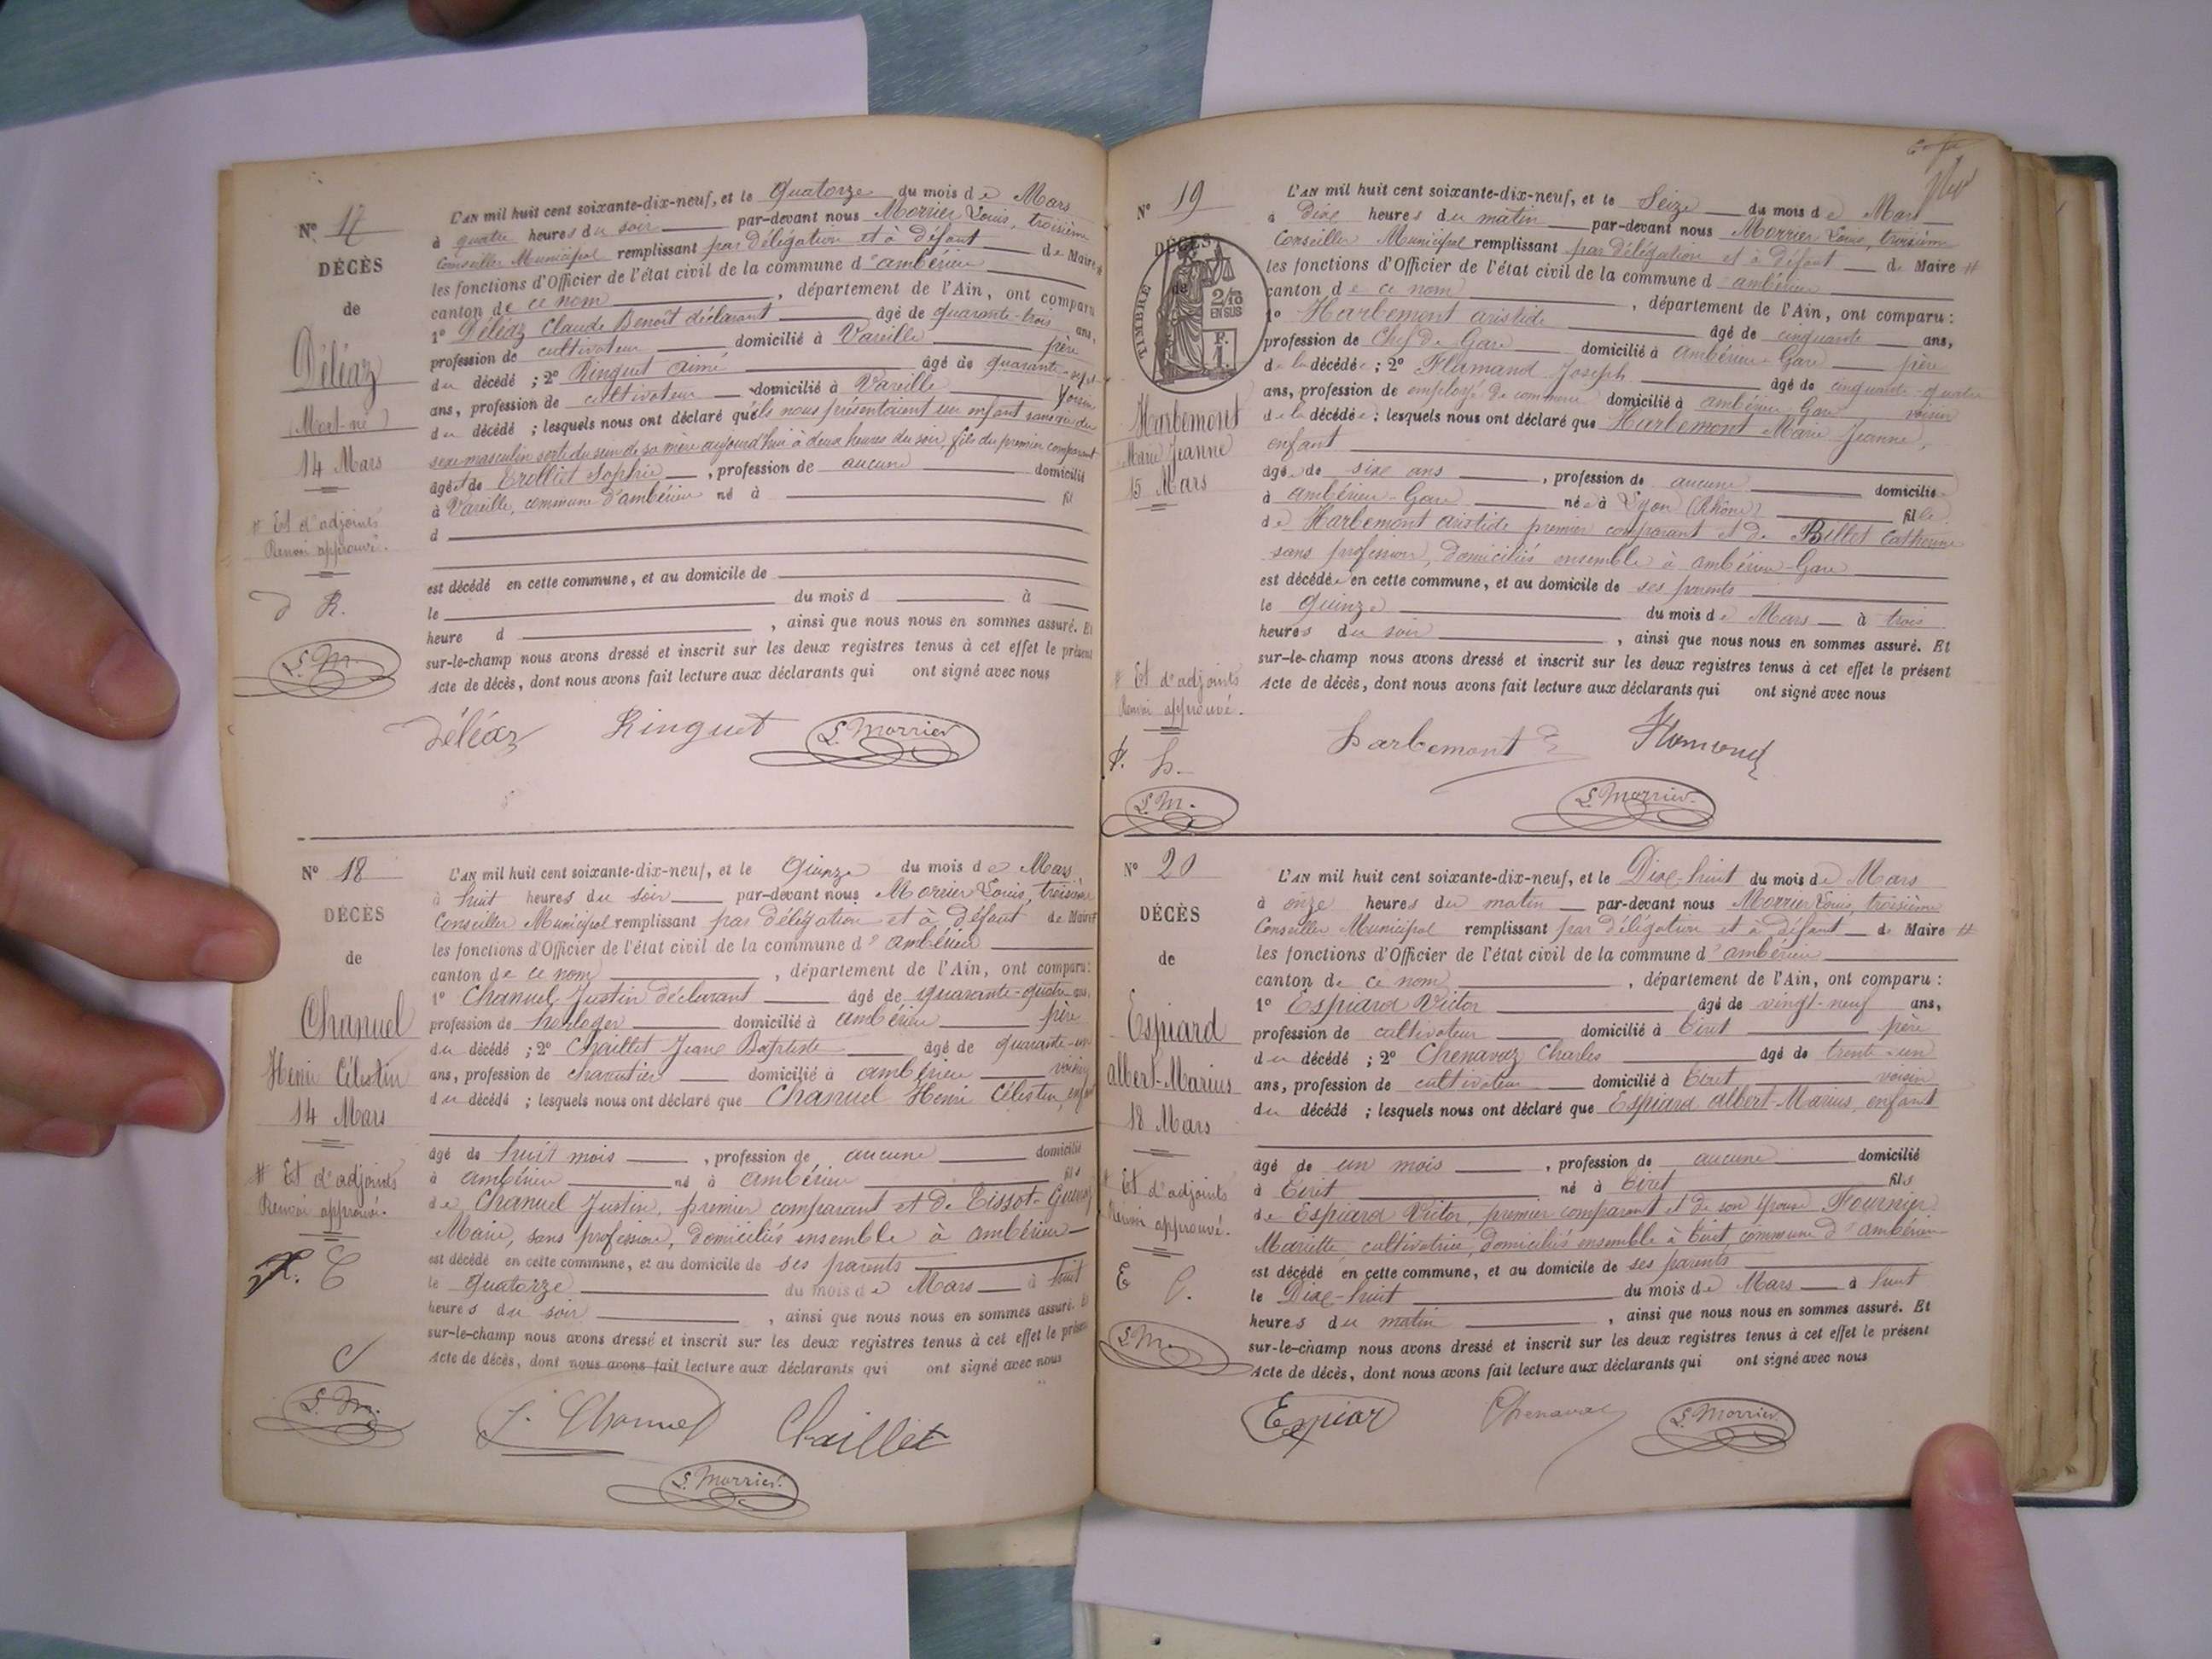 N° 17
DÉCÈS
de
Déléaz
(Mort-né)
14 Mars
# Et d'adjoints
Renvoi approuvé.
d R.
L. M.
L'AN mil huit cent soixante-dix-neuf, et le Quatorze du mois de Mars
à quatre heures du soir par-devant nous Morrier Louis, troisième
Conseiller Municipal remplissant par délégation et à défaut de Maire #
les fonctions d'Officier de l'état civil de la commune d'ambérieu
canton de ce nom, département de l'Ain, ont comparu
1° Déléaz Claude Benoît déclarant âgé de quarante-trois ans,
profession de cultivateur domicilié à Vareille père
du décédé ; 2° Ringuet aimé âgé de quarante-sept
ans, profession de cultivateur domicilié à Vareille voisin
du décédé ; lesquels nous ont déclaré qu'ils nous présentaient un enfant sans vie du
sexe masculin sorti du sein de sa mère aujourd'hui à deux heures du soir, fils du premier comparant
âgé et de Trolliet Sophie, profession de aucune domicilié
à Vareille, commune d'ambérieu né à fil
d
est décédé en cette commune, et au domicile de
le du mois d à
heure d , ainsi que nous nous en sommes assuré. Et
sur-le-champ nous avons dressé et inscrit sur les deux registres tenus à cet effet le présent
Acte de décès, dont nous avons fait lecture aux déclarants qui ont signé avec nous
Déléaz Ringuet L. Morrier
N° 18
DÉCÈS
de
Chanuel
Henri Célestin
14 Mars
# Et d'adjoints
Renvoi approuvé.
C
L. M.
L'AN mil huit cent soixante-dix-neuf, et le Quinze du mois de Mars
à huit heures du soir par-devant nous Morrier Louis, troisième
Conseiller Municipal remplissant par délégation et à défaut de Maire #
les fonctions d'Officier de l'état civil de la commune d'ambérieu
canton de ce nom, département de l'Ain, ont comparu :
1° Chanuel Justin déclarant âgé de quarante-quatre ans,
profession de horloger domicilié à ambérieu père
du décédé ; 2° Chaillet Jean Baptiste âgé de quarante-un
ans, profession de charcutier domicilié à ambérieu voisin
du décédé ; lesquels nous ont déclaré que Chanuel Henri Célestin, enfant
âgé de huit mois, profession de aucune domicilié
à ambérieu né à ambérieu fils
de Chanuel Justin, premier comparant et de Tissot-Guerraz
Marie, sans profession, domiciliés ensemble à ambérieu
est décédé en cette commune, et au domicile de ses parents
le quatorze du mois de Mars à huit
heures du soir, ainsi que nous nous en sommes assuré. Et
sur-le-champ nous avons dressé et inscrit sur les deux registres tenus à cet effet le présent
Acte de décès, dont nous avons fait lecture aux déclarants qui ont signé avec nous
J. Chanuel Chaillet
L. Morrier
N° 19
DÉCÈS
de
TIMBRE
2/10
EN SUS
F.
1.
Harbemont
Marie Jeanne
15 Mars
# Et d'adjoints
Renvoi approuvé.
f. h.
L. M.
L'AN mil huit cent soixante-dix-neuf, et le Seize du mois de Mars
à Dix heures du matin par-devant nous Morrier Louis, troisième
Conseiller Municipal remplissant par délégation et à défaut de Maire #
les fonctions d'Officier de l'état civil de la commune d'ambérieu
canton de ce nom, département de l'Ain, ont comparu :
1° Harbemont aristide âgé de cinquante ans,
profession de Chef de Gare domicilié à ambérieu-Gare père
de la décédée ; 2° Flamand Joseph âgé de cinquante-quatre
ans, profession de employé de commerce domicilié à ambérieu Gare voisin
de la décédée ; lesquels nous ont déclaré que Harbemont Marie Jeanne,
enfant
âgée de six ans, profession de aucune domiciliée
à ambérieu-Gare née à Lyon (Rhône) fille
de Harbemont aristide premier comparant et de Billet Catherine
sans profession, domiciliés ensemble à ambérieu-Gare
est décédée en cette commune, et au domicile de ses parents
le Quinze du mois de Mars à trois
heures du soir, ainsi que nous nous en sommes assuré. Et
sur-le-champ nous avons dressé et inscrit sur les deux registres tenus à cet effet le présent
Acte de décès, dont nous avons fait lecture aux déclarants qui ont signé avec nous
harbemont Flamand
L. Morrier
N° 20
DÉCÈS
de
Espiard
albert-Marius
18 Mars
# Et d'adjoints
Renvoi approuvé.
E C.
L. M.
L'AN mil huit cent soixante-dix-neuf, et le Dix-huit du mois de Mars
à onze heures du matin par-devant nous Morrier Louis, troisième
Conseiller Municipal remplissant par délégation et à défaut de Maire #
les fonctions d'Officier de l'état civil de la commune d'ambérieu
canton de ce nom, département de l'Ain, ont comparu :
1° Espiard Victor âgé de vingt-neuf ans,
profession de cultivateur domicilié à Tiret père
du décédé ; 2° Chenavaz Charles âgé de trente-un
ans, profession de cultivateur domicilié à Tiret voisin
du décédé ; lesquels nous ont déclaré que Espiard albert-Marius, enfant
âgé de un mois, profession de aucune domicilié
à Tiret né à Tiret fils
de Espiard Victor, premier comparant et de son épouse Fournier
Mariette, cultivatrice, domiciliés ensemble à Tiret, commune d'ambérieu
est décédé en cette commune, et au domicile de ses parents
le Dix-huit du mois de Mars à huit
heures du matin, ainsi que nous nous en sommes assuré. Et
sur-le-champ nous avons dressé et inscrit sur les deux registres tenus à cet effet le présent
Acte de décès, dont nous avons fait lecture aux déclarants qui ont signé avec nous
Espiar Chenavaz L. Morrier